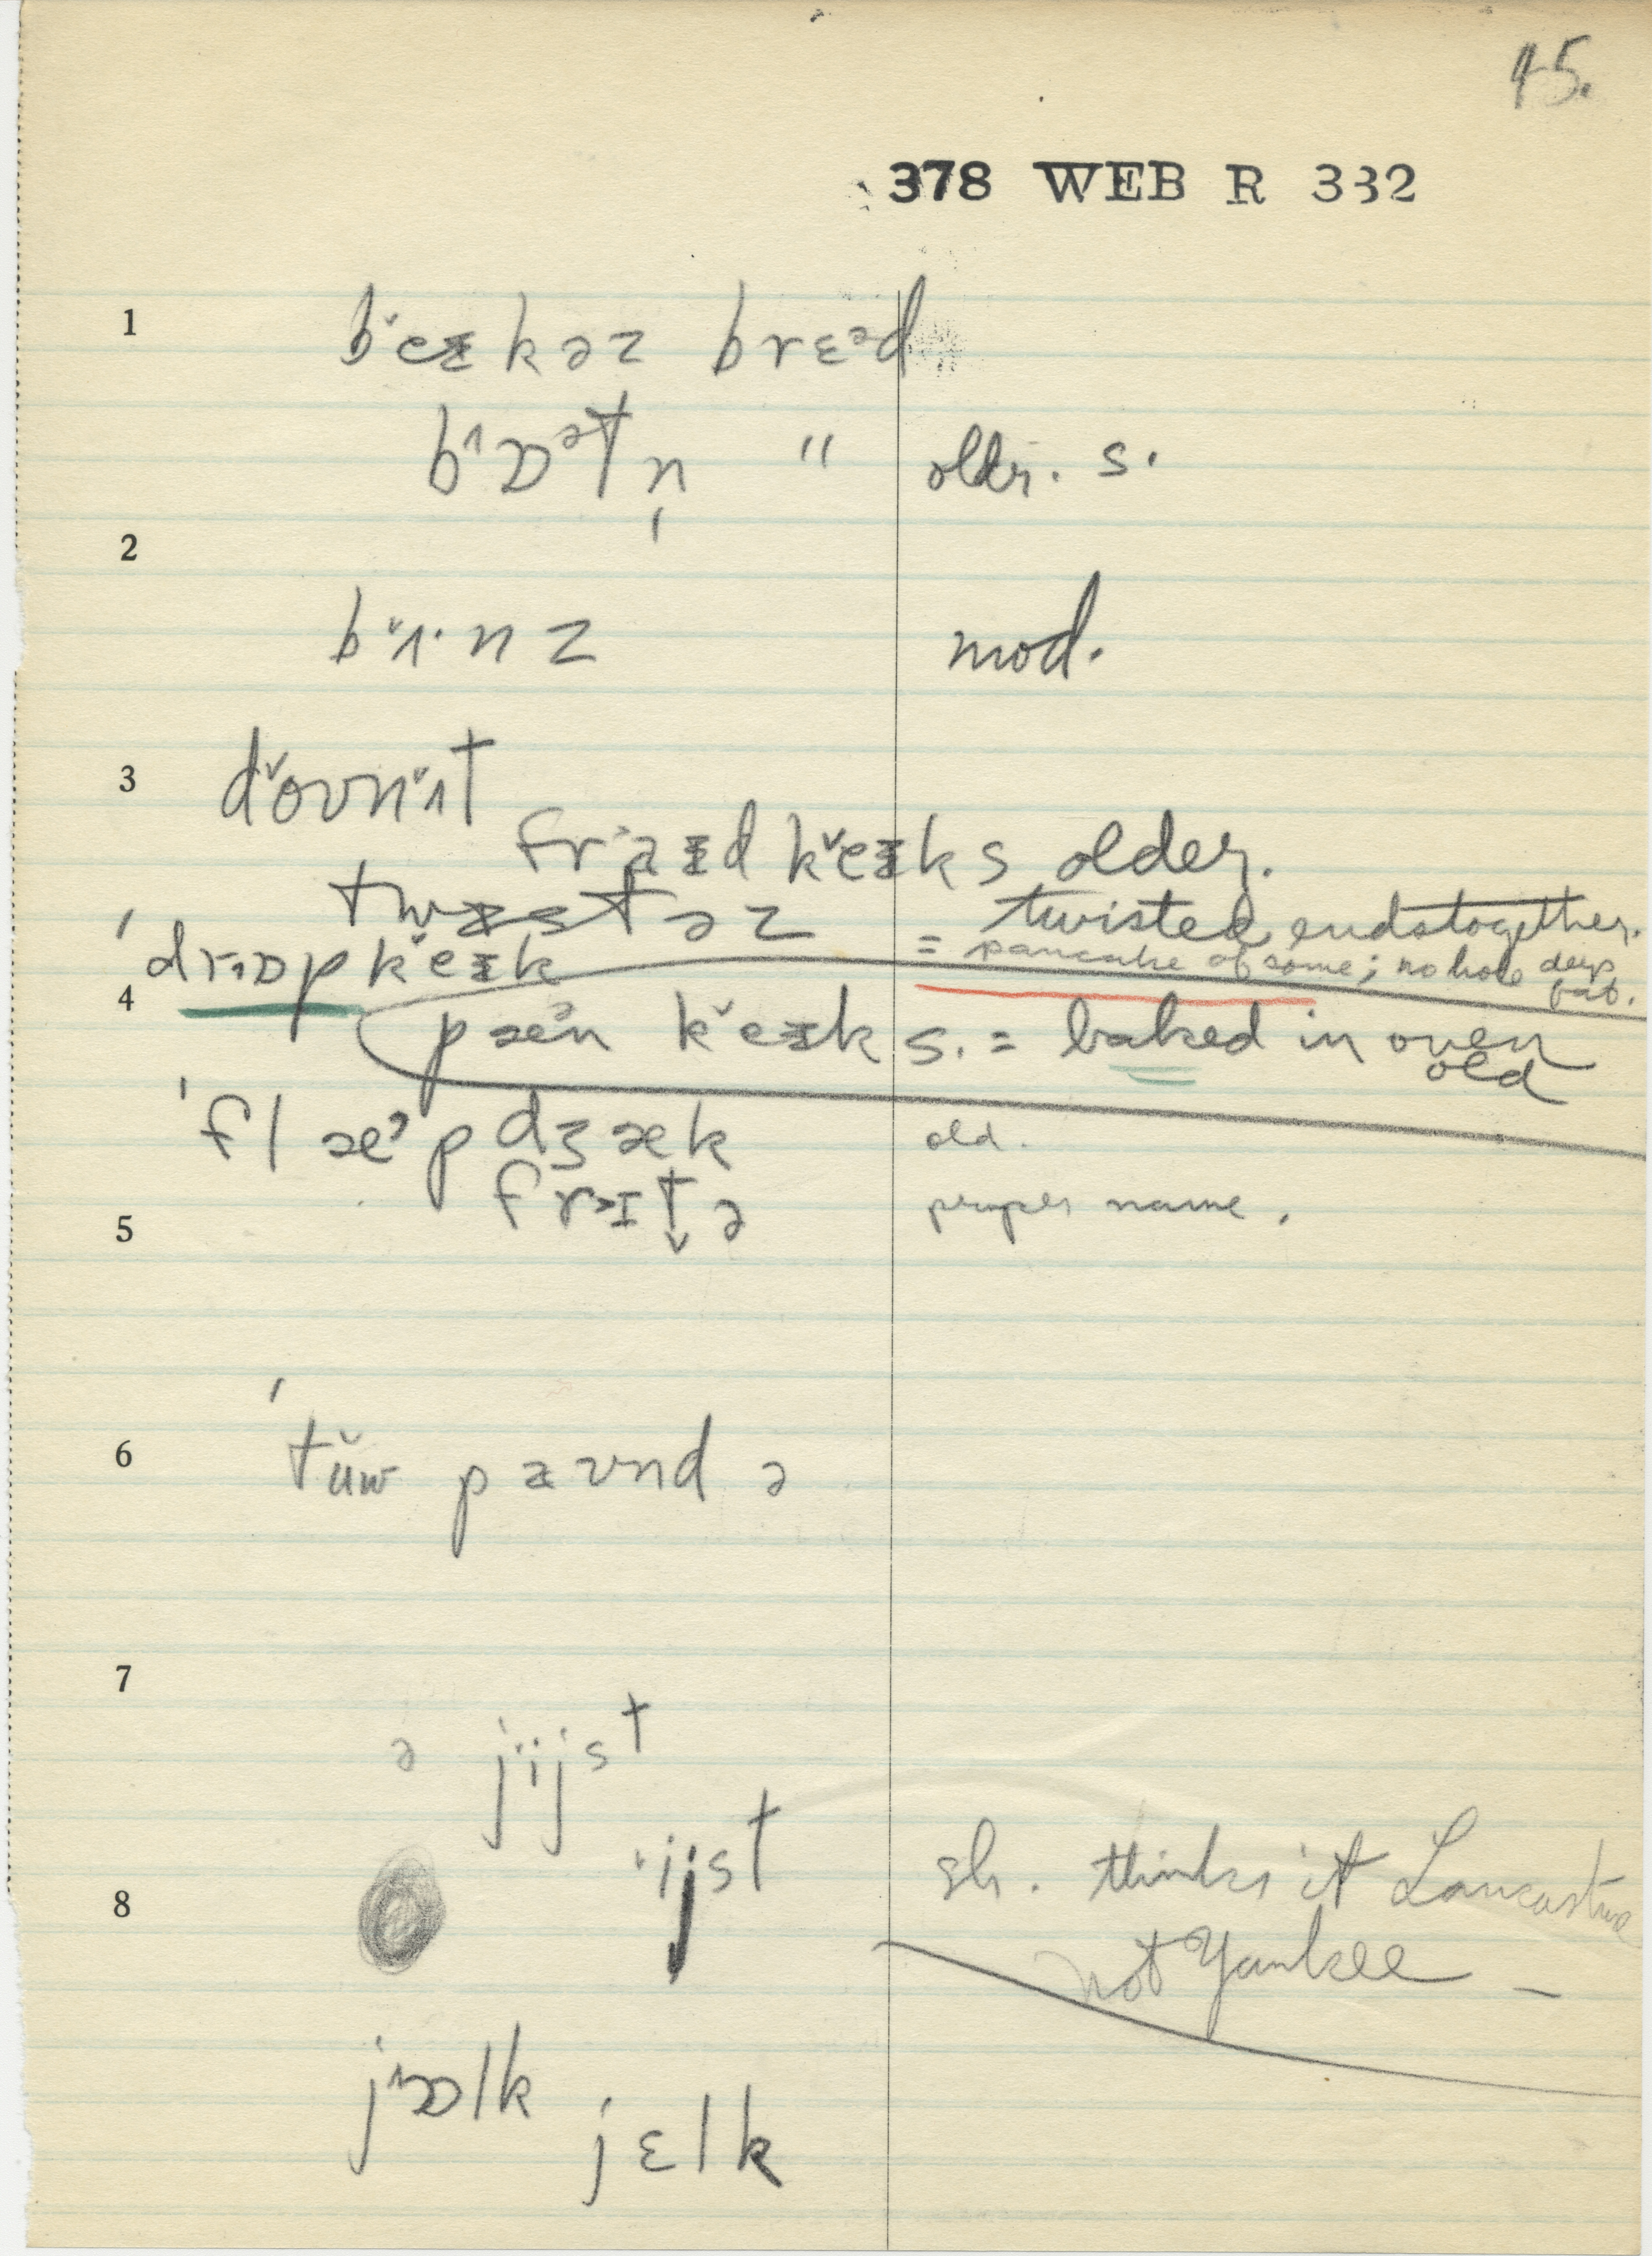 45.
378 WEB R 332
1 b̌eɪkəz brɛᵊd
bɒᵊtn̩ " oldr. s.
2
bɪ·nz mod.
3 ďoʊňɪt
fraɪd ǩeɪks older.
twɪstəz = twisted ends together.
ˈdrɒpǩeɪk = pancake of some; no hole deep fat.
4 pæᵊn ǩeɪks. = baked in oven
old
ˈflæᵊpdʒæk old.
frɪtə proper name.
5
6 ˈtǔw paʊnd ə
7
ə jijst
ijst
8 sh. thinks it Lancastr
not Yankee –
jɒlk
jɛlk